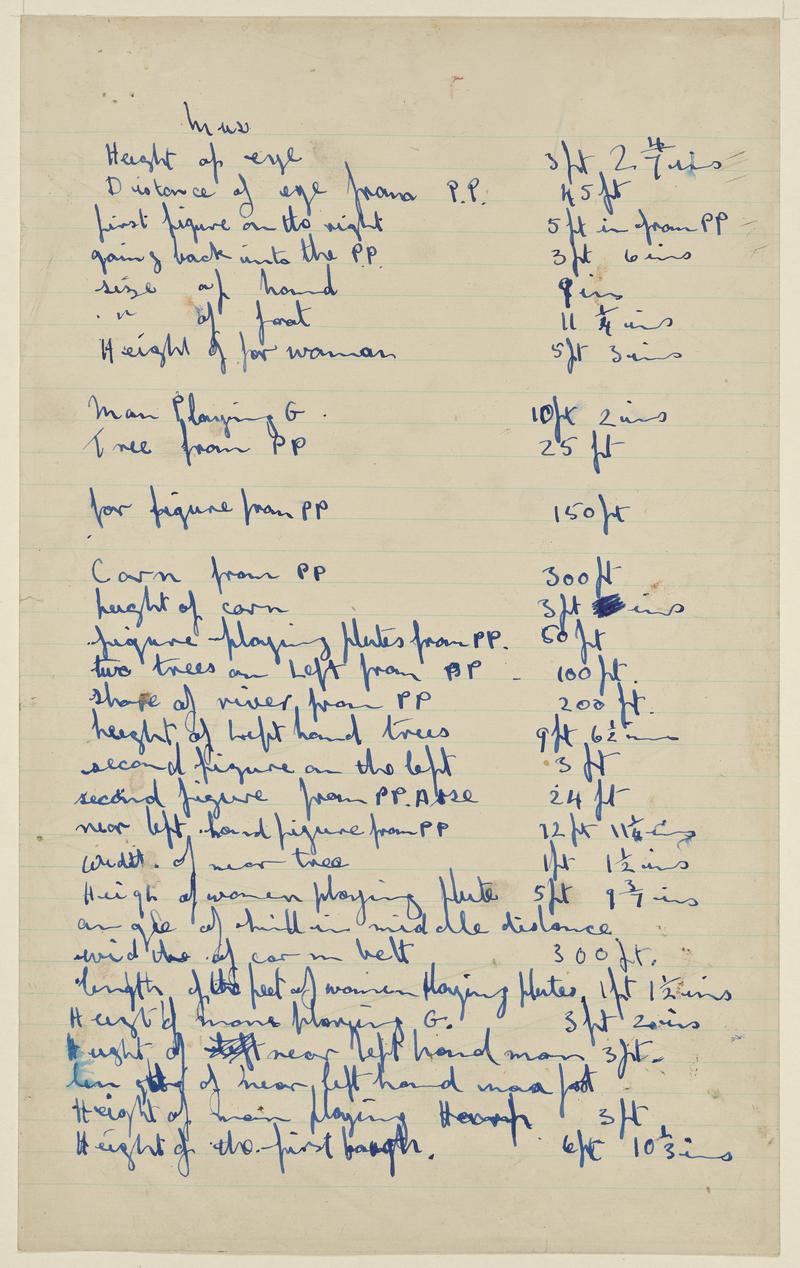 Mus
Height of eye 3ft 2 4/7 ins
Distance of eye from P.P. 45ft
first figure on the right 5ft in from PP
going back into the P.P. 3ft 6 ins
size of hand 9 ins
" of foot 11 1/4 ins
Height of for woman 5ft 3 ins
Man Playing G. 10ft 2 ins
Tree from PP 25 ft
for figure from PP 150 ft
Corn from PP 300 ft
height of corn 3ft ins
figure playing flutes from PP. 50 ft
two trees on Left from PP - 100 ft.
shore of river from PP 200 ft.
height of Left hand trees 9ft 6 1/2 ins
second figure on the left 3 ft
second figure from PP. 24 ft
near left hand figure from PP 12 ft 11 1/4 ins
width of near tree 1ft 1 1/2 ins
Heigh of women playing flute 5ft 9 3/7 ins
angle of hill in middle distance
widths of corn belt 300 ft.
length of the feet of women Playing flutes. 1ft 1 1/2 ins
Height of mans playing G. 3ft 2 ins
Hight of near left hand man 3ft.
length of near left hand man foot
Height of man playing Hearp 3 ft
Height of the first bough. 6ft 10 1/3 ins